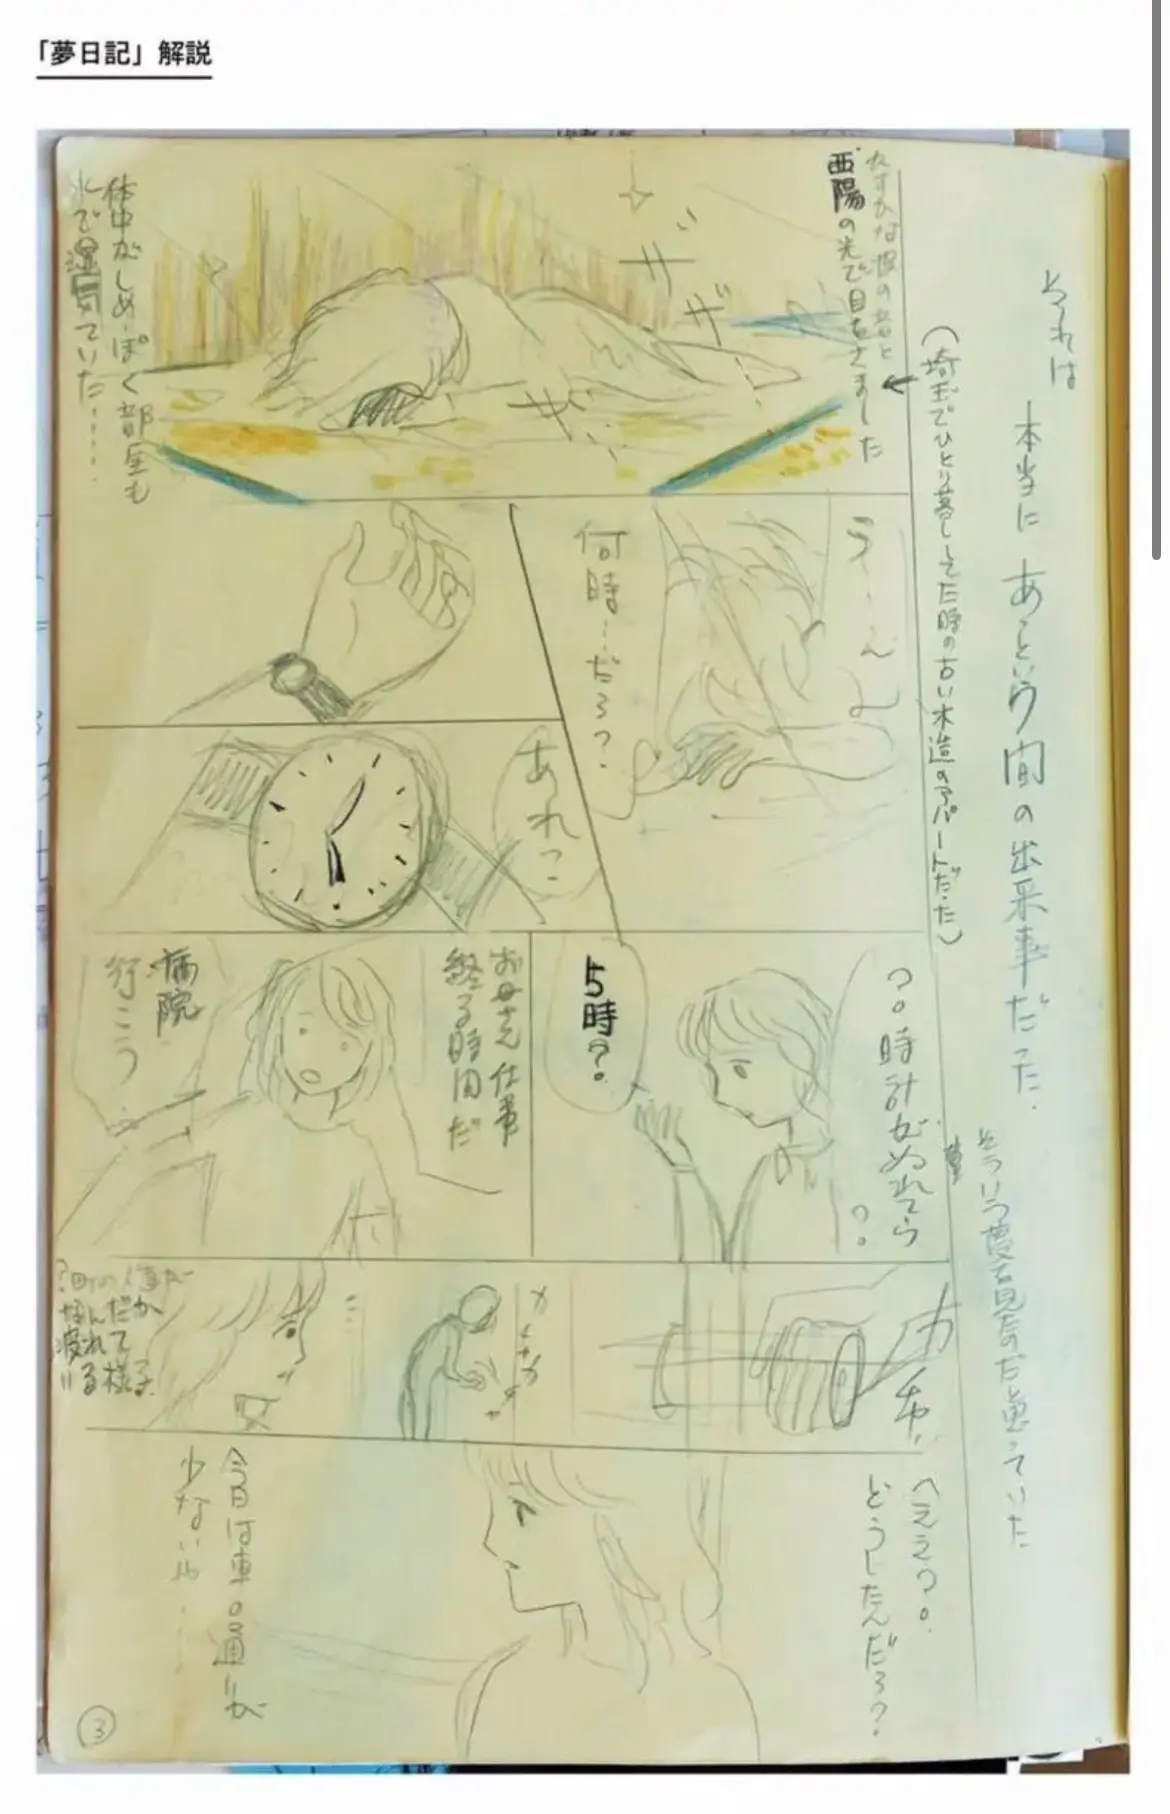 「夢日記」解説
それは
本当に あっという間の出来事だった.
そういう夢を見たのだと思っていた
(埼玉でひとり暮ししてた時の古い木造のアパートだった)
かすかな波の音と
西陽の光で目をさました
ザ
ザ
体中がしめっぽく部屋も
水で湿気ていた……
う…ん
何時…だろ?
あれっ
?。時計がぬれてら
??
5時?。
お母さん 仕事
終る時間だ
病院
行こう…
カチャ
なんだか
疲れて
いる様子
へえ?。
どうしたんだろ?
今日は車の通りが
少ないや……
3